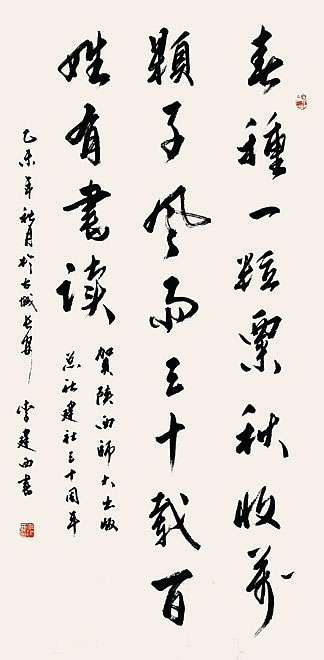 春種一粒粟秋收萬
顆子風雨三十載百
姓有書讀
賀陝西師大出版
總社建社三十周年
乙未年秋月於古城長安 李建西書